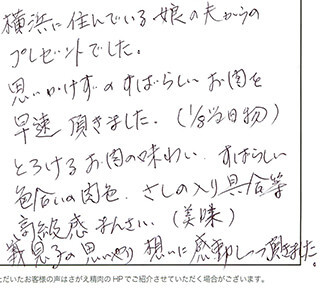 横浜に住んでいる娘の夫からの
プレゼントでした。
思いかけずのすばらしいお肉を
早速頂きました。(1/8当日物)
とろけるお肉の味わい、すばらしい
色合いの肉色、さしの入り具合等
高級感まんさい。(美味)
我息子の思いやり想いに感動しつつ頂きました。
ただいたお客様の声はさがえ精肉のHPでご紹介させていただく場合がございます。